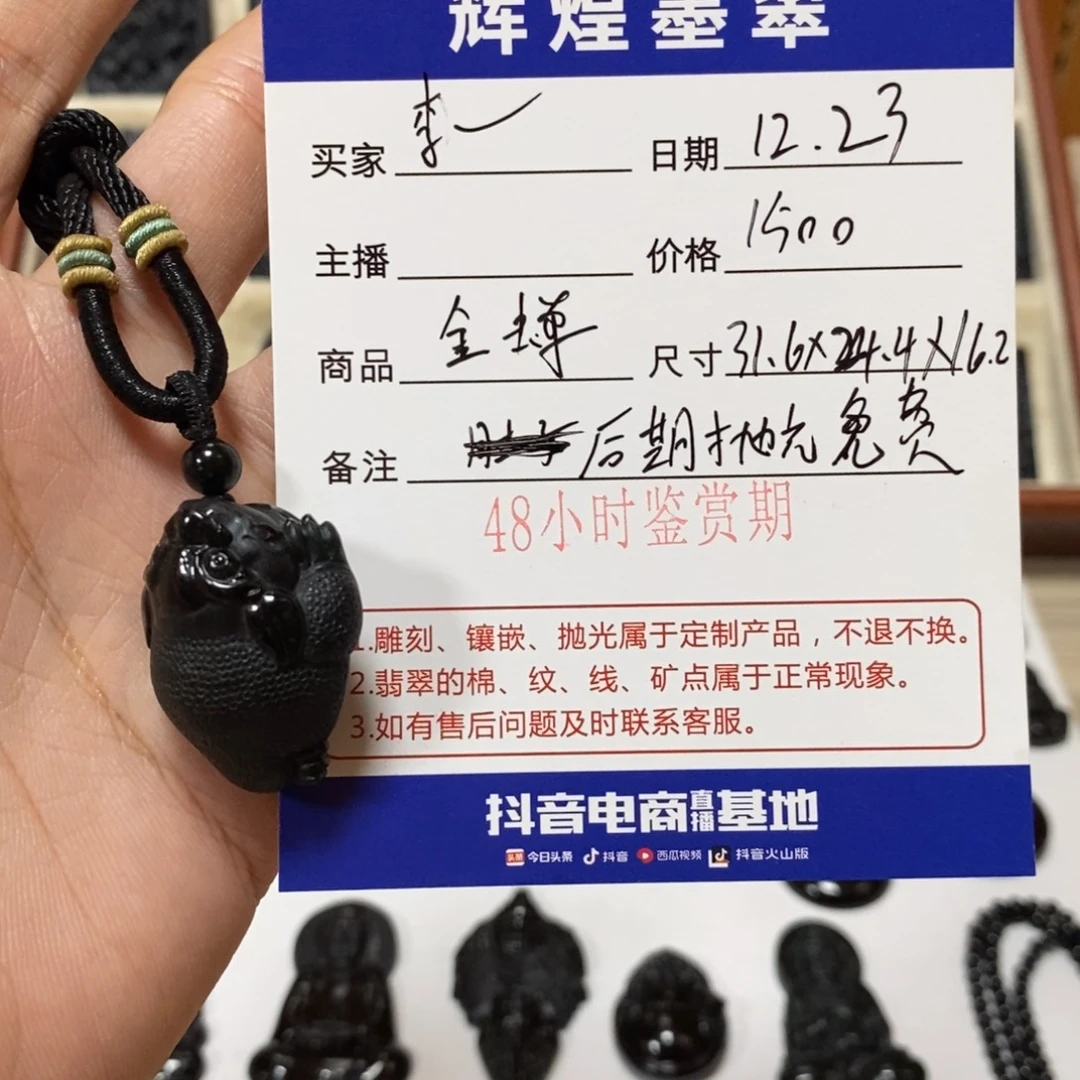 辉煌墨翠
买家 李一 日期 12.23
主播 价格 1500
商品 金蝉 尺寸 31.6×24.4×16.2
备注 后期抛光免费
48小时鉴赏期
1.雕刻、镶嵌、抛光属于定制产品，不退不换。
2.翡翠的棉、纹、线、矿点属于正常现象。
3.如有售后问题及时联系客服。
抖音电商直播基地
头条 今日头条 抖音 西瓜视频 抖音火山版